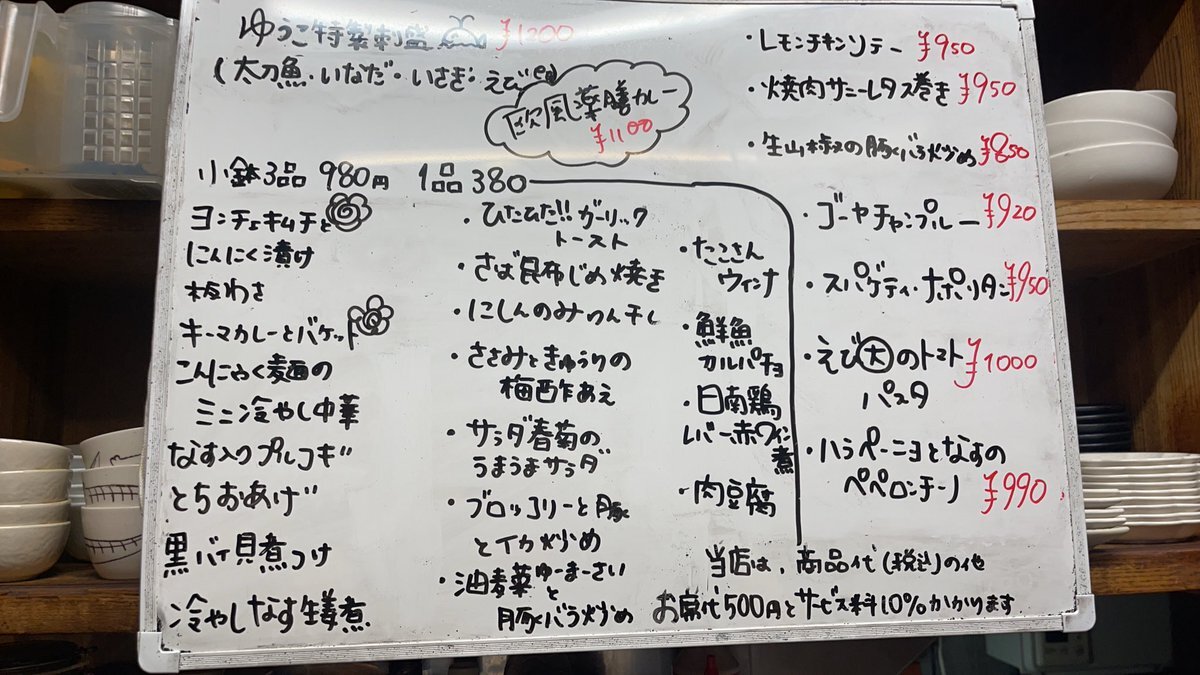 ゆうこ特製刺盛 ¥1200
(太刀魚・いなだ・いさき・えび etc)
欧風薬膳カレー
¥1100
小鉢3品 980円 1品 380
ヨンチェキムチと
にんにく漬け
板わさ
キーマカレーとバケット
こんにゃく麺の
ミニ冷やし中華
なす入りプルコギ
とちおあげ
黒バイ貝煮つけ
冷やしなす生姜煮
・ひたひた!!ガーリック
トースト
・さば昆布じめ焼き
・にしんのみりん干し
・ささみときゅうりの
梅酢あえ
・サラダ春菊の
うまうまサラダ
・ブロッコリーと豚
とイカ炒め
・油麦菜ゆーまーさい
と
豚バラ炒め
・たこさん
ウィンナ
・鮮魚
カルパチョ
・日南鶏
レバー赤ワイン
煮
・肉豆腐
・レモンチキンソテー ¥950
・焼肉サニーレタス巻き ¥950
・生山椒の豚バラ炒め ¥850
・ゴーヤチャンプルー ¥920
・スパゲティ・ナポリタン ¥950
・えび大のトマト ¥1000
パスタ
・ハラペーニョとなすの
ペペロンチーノ ¥990
当店は、商品代(税込)の他
お席代500円とサービス料10%かかります